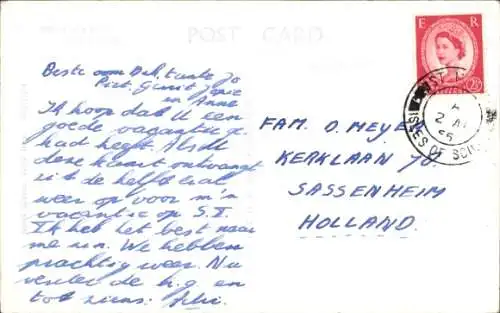 POST CARD
E R
2½
ISLES OF SCI
2
55
Beste oom Dik, tante Jo
Piet, Gerrit, Janie
en Anne
Ik hoop dat U een
goede vacantie ge-
had heeft. Als U
deze kaart ontvangt
zit de helft al
weer op voor m'n
vacantie op S.I.
Ik heb het best naar
me zin. We hebben
prachtig weer. Nu
verder de h.g. en
tot ziens.
FAM. D. MEYER
KERKLAAN 70.
SASSENHEIM
HOLLAND.